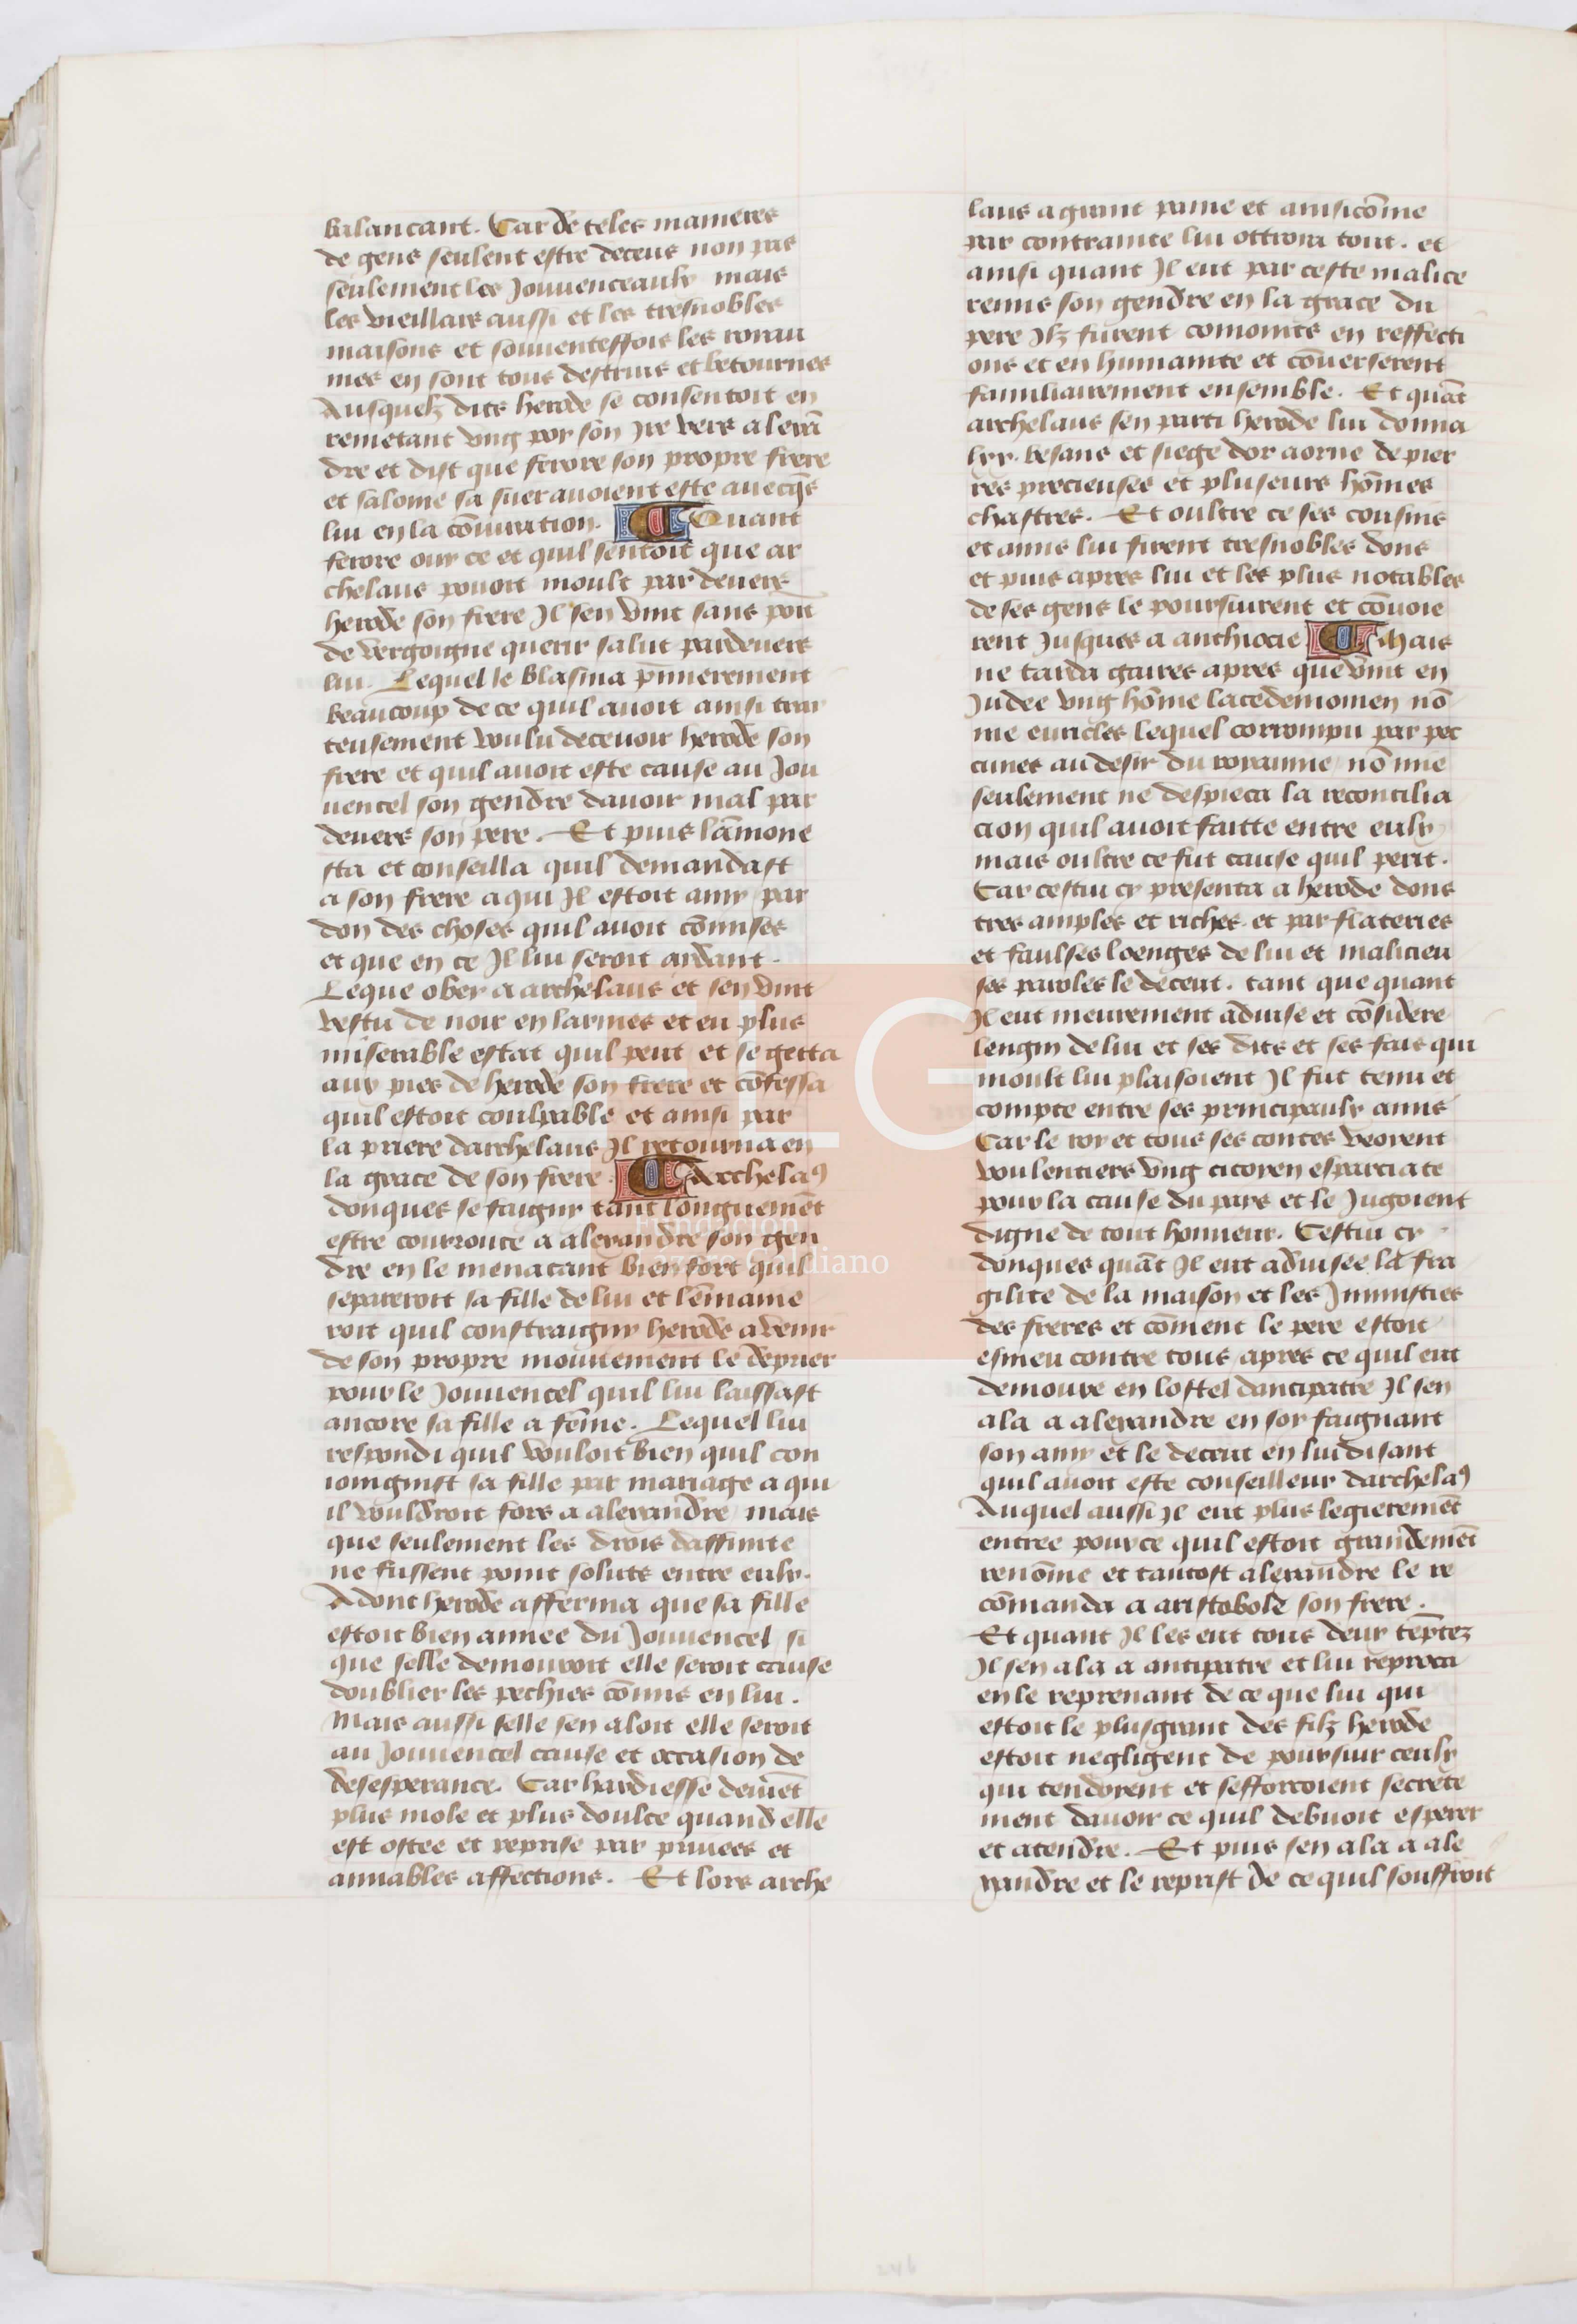 balancant. Car de teles manieres
de gens seulent estre deceus non pas
seulement les Jouuenceaulx mais
les vieillars aussi et les tresnobles
maisons et souuenteffois les roiau
mes en sont tous destruis et bestournes
Ausquelz dits herode se consentoit en
remetant vng poy son Ire vers alexā
dre et dist que ferore son propre frere
et salome sa suer auoient este auecq̄s
lui en la cōiuration. Quant
ferore ouy ce et quil sentoit que ar
chelaus pouoit moult par deuers
herode son frere Il sen vint sans poīt
de vergoigne querir salut pardeuers
lui. Lequel le blasma p̄mierement
beaucoup de ce quil auoit ainsi trai
teusement voulu deceuoir herode son
frere et quil auoit este cause au Jou
uencel son gendre dauoir mal par
deuers son pere. Et puis lāmone
sta et conseilla quil demandast
a son frere a qui Il estoit amy par
don des choses quil auoit cōmises
et que en ce Il lui seroit aidant.
Leque obey a archelaus et sen vint
vestu de noir en larmes et en plus
miserable estat quil peut et se getta
aux pies de herode son frere et cōfessa
quil estoit coulpable et ainsi par
la priere darchelaus Il retourna en
la grace de son frere. Archela⁹
donques se faigny tant longuemēt
estre courrouce a alexandre son gen
dre en le menacant bien fort quil
separeroit sa fille de lui et lēmaine
roit quil constraigny herode a venir
de son propre mouuement le deprier
pour le Jouuencel quil lui laissast
ancore sa fille a fēme. Lequel lui
respondi quil vouloit bien quil con
ioingnist sa fille par mariage a qui
il vouldroit fors a alexandre mais
que seulement les drois daffinite
ne fussent point soluts entre eulx.
Adont herode afferma que sa fille
estoit bien amee du Jouuencel si
que selle demouroit elle seroit cause
doublier les pechies cōmis en lui.
Mais aussi selle sen aloit elle seroit
au Jouuencel cause et occasion de
desesperance. Car hardiesse deuiēt
plus mole et plus doulce quand elle
est ostee et reprise par priuees et
amiables affections. Et lors arche
laus a grant paine et ainsi cōme
par contrainte lui ottroia tout. et
ainsi quant Il eut par ceste malice
remis son gendre en la grace du
pere Ilz furent comoints en reffecti
ons et en humanite et cōuerserent
familiairement ensemble. Et quāt
archelaus sen parti herode lui donna
lxx. besans et siege dor aorne de pier
res precieuses et pluseurs hōmes
chastres. Et oultre ce ses cousins
et amis lui firent tresnobles dons
et puis apres lui et les plus notables
de ses gens le poursuirent et cōuoie
rent Jusques a anthiocie Mais
ne tarda gaires apres que vint en
Judee vng hōme lacedemonien nō
me euricles lequel corrompu par pec
cunes au desir du royaume nō mie
seulement ne despieca la reconcilia
cion quil auoit faitte entre eulx
mais oultre ce fut cause quil perit.
Car cestui cy presenta a herode dons
tres amples et riches. et par flateries
et faulses loenges de lui et malicieu
ses paroles le deceut. tant que quant
Il eut meurement aduise et cōsidere
lengin de lui et ses dits et ses fais qui
moult lui plaisoient Il fut tenu et
compte entre ses principaulx amis
Car le roy et tous ses contes veoient
voulentiers vng citoyen esparciate
pour la cause du pais et le Jugoient
digne de tout honneur. Cestui cy
donques quāt Il eut aduisee la fra
gilite de la maison et les Inimisties
des freres et cōment le pere estoit
esmeu contre tous apres ce quil eut
demoure en lostel dantipatre Il sen
ala a alexandre en soy faignant
son amy et le deceut en lui disant
quil auoit este conseilleur darchela⁹
Auquel aussi Il eut plus legieremēt
entree pource quil estoit grandemēt
renōme et tantost alexandre le re
cōmanda a aristobole son frere.
Et quant Il les eut tous deux tēptez
Il sen ala a antipatre et lui reproca
en le reprenant de ce que lui qui
estoit le plusgrant des filz herode
estoit negligent de poursuir ceulx
qui tendoient et sefforcoient secrete
ment dauoir ce quil debuoit esperer
et atendre. Et puis sen ala a ale
xandre et le reprist de ce quil souffroit
FLG
Fundación
Lázaro Galdiano